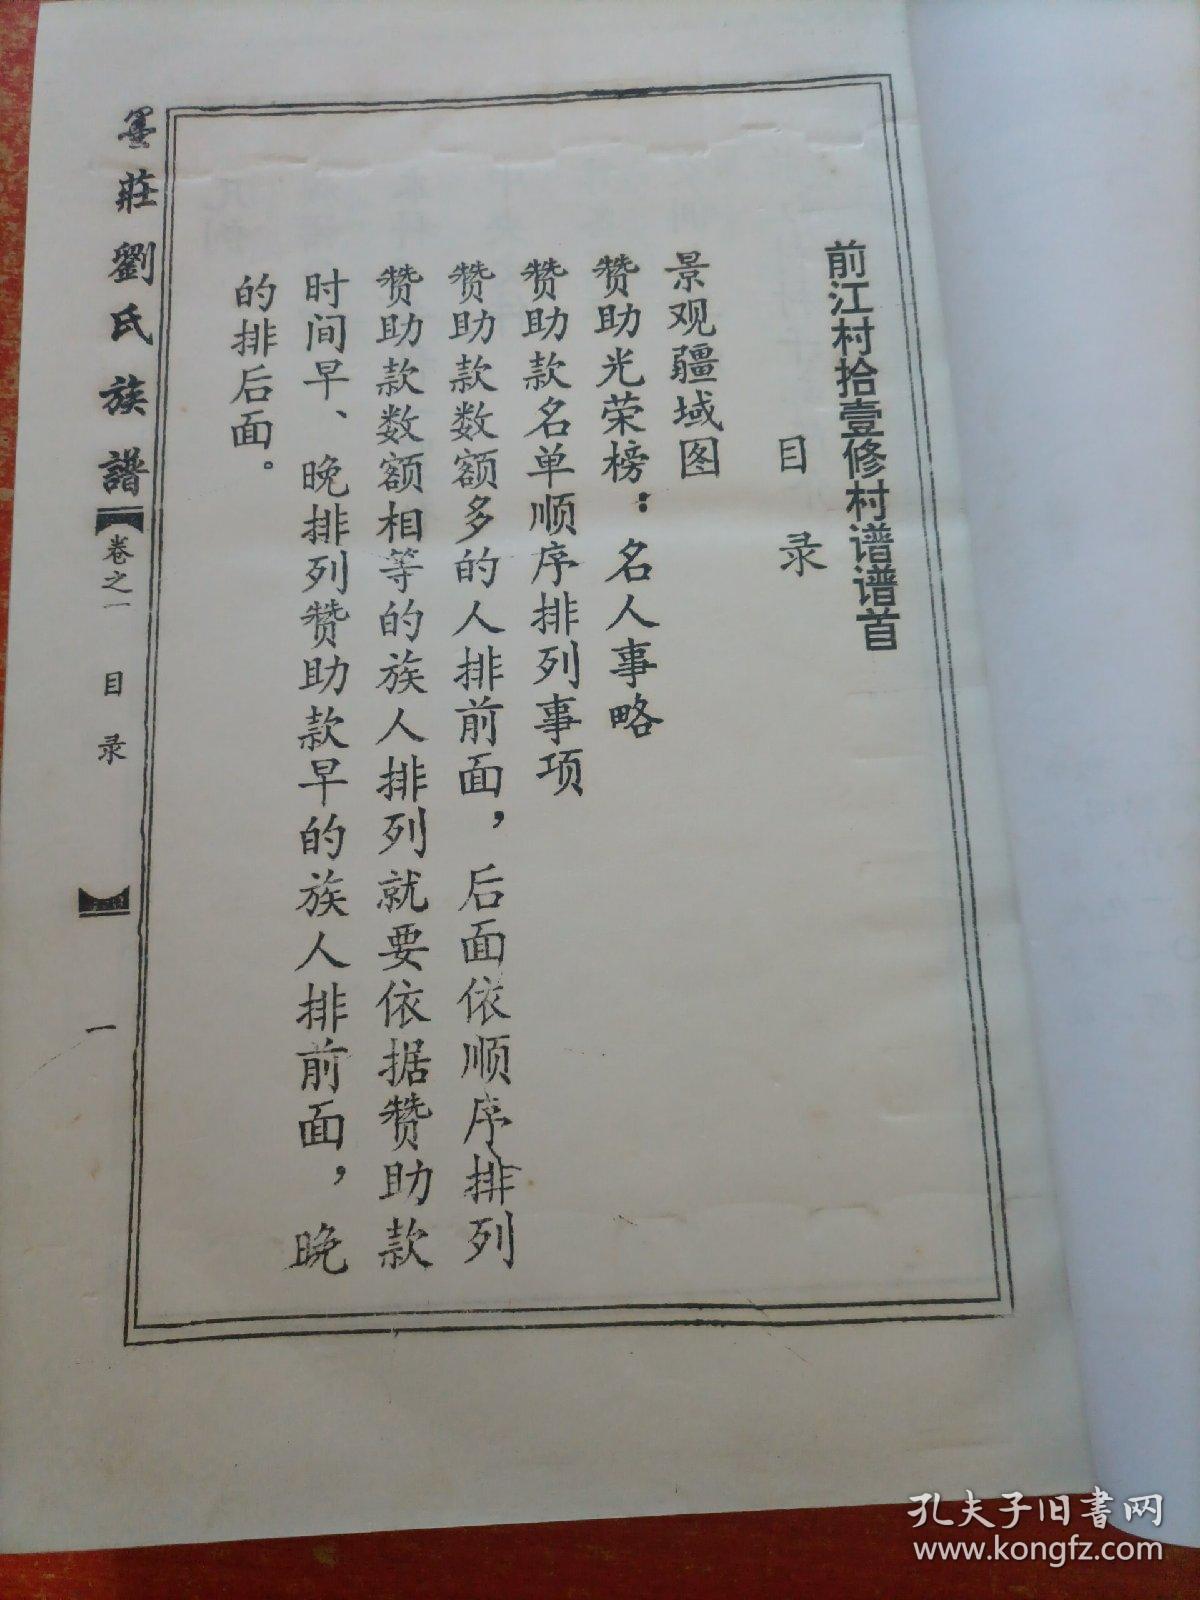 前江村拾壹修村谱谱首
目录
景观疆域图
赞助光荣榜：名人事略
赞助款名单顺序排列事项
赞助款数额多的人排前面，后面依顺序排列
赞助款数额相等的族人排列就要依据赞助款
时间早、晚排列赞助款早的族人排前面，晚
的排后面。
墨莊劉氏族譜
卷之一
目录
一
孔夫子旧书网
www.kongfz.com